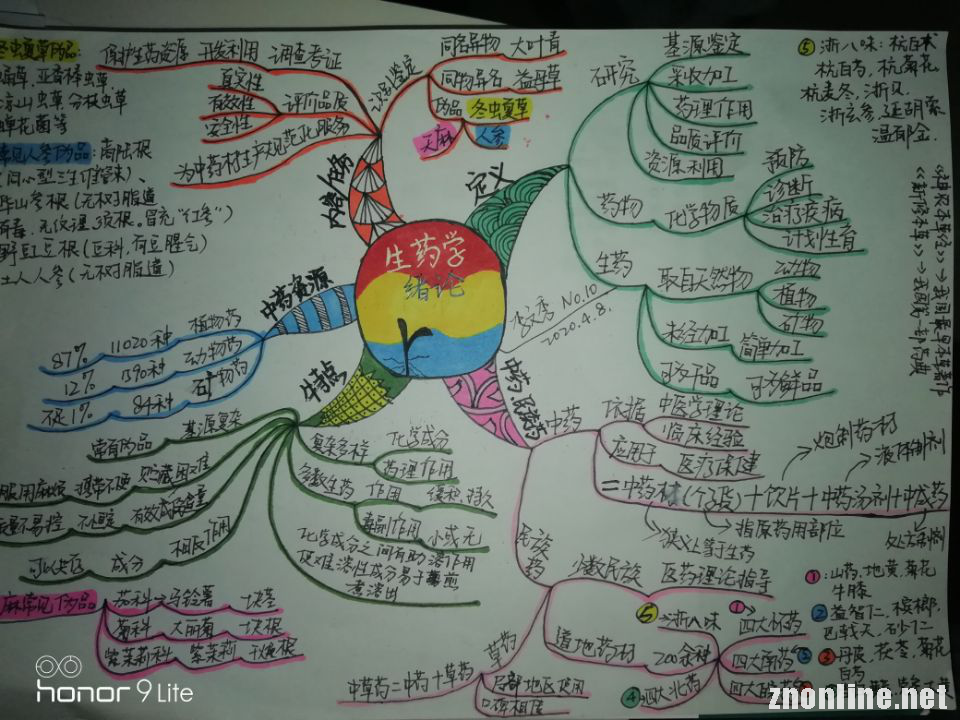 生药学
绪论
李文秀 No.10
2020.4.8.
定义
研究
基源鉴定
采收加工
药理作用
品质评价
资源利用
药物
化学物质
预防
诊断
治疗疾病
计划生育
生药
取自天然物
动物
植物
矿物
未经加工
简单加工
可为干品
可为鲜品
⑤ 浙八味: 杭白术
杭白芍, 杭菊花
杭麦冬, 浙贝
浙玄参, 延胡索
温郁金.
《神农本草经》→我国最早本草著作
《新修本草》→我国第一部药典
内容任务
识别鉴定
同名异物 大叶青
同物异名 益母草
伪品 冬虫夏草
天麻 人参
保护生药资源 开发利用 调查考证
真实性
有效性
安全性
评价品质
为中药材生产规范化服务
冬虫夏草伪品:
亚香棒虫草
凉山虫草 分枝虫草
蝉花菌等
常见人参伪品: 商陆根
华山参根 (无树脂道)
野豇豆根 (豆科, 有豆腥气)
土人人参 (无树脂道)
中药资源
植物药 11020种 87%
动物药 1590种 12%
矿物药 84种 不足1%
特点
基源复杂 常有伪品
服用麻烦 携带不便 贮藏困难
质量不易控 不恒定 有效成份含量
可以缺乏 成分 相反作用
复杂多样 化学成分
药理作用
多数生药 作用 缓和 持久
毒副作用 小或无
化学成分之间有助溶作用
使难溶性成分易于煎
煮溶出
天麻常见伪品
茄科→马铃薯 块茎
菊科 大丽菊 块根
紫茉莉科 紫茉莉 干燥根
中药 民族药
中药
依据 中医学理论
临床经验
应用于 医疗保健
=中药材(行段)+饮片+中药汤剂+中成药
炮制药材
液体制剂
狭义上等于生药
指原药用部位
处方制剂
民族药
少数民族 医药理论指导
道地药材 200余种
⑤ 浙八味
① 四大怀药
四大南药 ②
③
④ 四大北药
草药
局部地区使用
口碑相传
中草药=中药+草药
①: 山药, 地黄, 菊花
牛膝
② 益智仁, 槟榔,
巴戟天, 砂仁
③ 丹皮, 茯苓, 菊花
白芍
honor 9 Lite
znonline.net